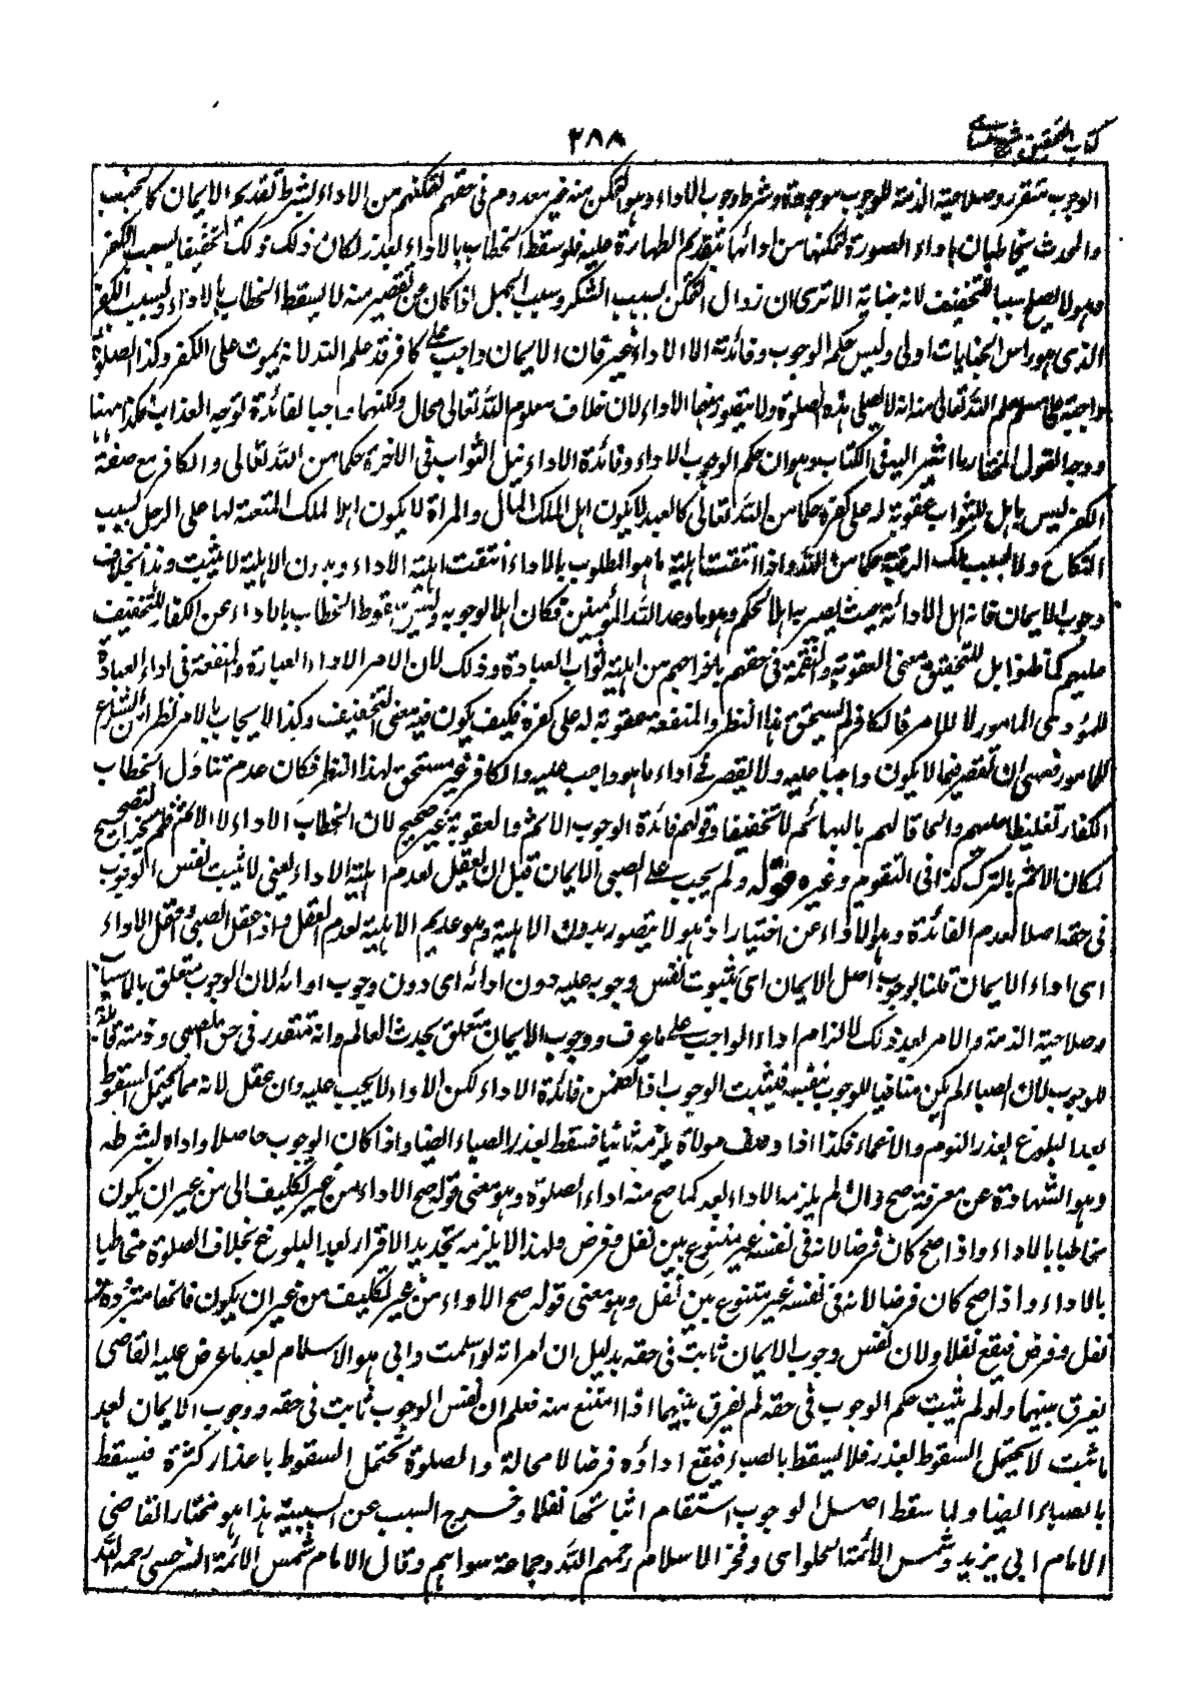 كتاب التحقيق شرح حسامى
٢٨٨
الوجوب متقرر وصلاحية الذمة للوجوب موجودة وشرط وجوب الاداء وهو التمكن منه غير معدوم فى حقهم لتمكنهم من الاداء بشرط تقديم الايمان كالجنب
والمحدث يخاطبان باداء الصلوة لتمكنهما من ادائها بتقديم الطهارة عليه فلو سقط الخطاب بالاداء بعذر لكان ذلك تخفيفا بسبب الكفر
وهو لا يصلح سببا للتخفيف لانه جناية الا ترى ان زوال التمكن بسبب السكر وسبب الجهل اذا كان عن تقصير منه لا يسقط الخطاب بالاداء فبسبب الكفر
الذى هو راس الجنايات اولى وليس حكم الوجوب وفائدته الا الاداء غير فان الايمان واجب على كافر قد علم الله انه يموت على الكفر وكذا الصلوة
واجبة على مسلم علم الله تعالى منه انه لا يصلى هذه الصلوة ولا يتصور منهما الاداء لان خلاف معلوم الله تعالى محال ولكنهما واجبا لفائدة توجه العذاب فكذا ههنا
ووجه القول المختار ما اشير اليه فى الكتاب وهو ان حكم الوجوب الاداء وفائدة الاداء نيل الثواب فى الآخرة حكما من الله تعالى والكافر مع صفة
الكفر ليس باهل للثواب عقوبة له على كفره حكما من الله تعالى كالعبد لا يكون اهلا لملك المال والمراة لا يكون اهلا لملك المتعة لها على الرجل بسبب
النكاح ولا بسبب ملك الرقبة حكما من الله واذا انتفت اهلية ما هو المطلوب بالاداء انتفت اهلية الاداء وبدون الاهلية لا يثبت وهذا بخلاف
وجوب الايمان فانه اهل لادائه بحيث يصير به اهلا لحكمه وهو ما وعد الله المؤمنين فكان اهلا لوجوبه وليس سقوط الخطاب بالاداء عن الكفار للتخفيف
عليهم كما ظنوا بل لتحقيق معنى العقوبة والنقمة فى حقهم باخراجهم من اهلية ثواب العبادة وذلك لان الامر لاداء العبادة والمنفعة فى اداء العبادة
للمؤدى المامور لا للامر فالكافر لم يستحق هذا النظر والمنفعة عقوبة له على كفره فكيف يكون فيه معنى التخفيف وكذا الايجاب بالامر نظر من الشارع
للمامور فعسى ان يقصر فيما لا يكون واجبا عليه ولا يقصر فى اداء ما هو واجب عليه والكافر غير مستحق لهذا النظر فكان عدم تناول الخطاب
الكفار تغليظا عليهم والحاقا لهم بالبهائم لا تخفيفا وقولهم فائدة الوجوب الاثم والعقوبة غير صحيح لان الخطاب الاداء لا الاثم فلم يجز لتصحيح
لمكان الاثم بالترك كذا فى التقويم وغيره قوله ولم يجب على الصبى الايمان قبل ان يعقل لعدم اهلية الاداء يعنى لا يثبت نفس الوجوب
فى حقه اصلا لعدم الفائدة وهو الاداء عن اختيار اذ هو لا يتصور بدون الاهلية وهو عديم الاهلية لعدم العقل واذا عقل الصبى وعقل الاداء
اى اداء الايمان قلنا بوجوب اصل الايمان اى بثبوت نفس وجوبه عليه دون ادائه اى دون وجوب ادائه لان الوجوب متعلق بالاسباب
وصلاحية الذمة والامر بعد ذلك لالتزام اداء الواجب على ما عرف ووجوب الايمان متعلق بحدث العالم وانه متقدر فى حق الصبى وذمته قابلة
للوجوب لان الصباء لم يكن منافيا للوجوب بنفسه فيثبت الوجوب اذا تضمن فائدة الاداء لكن الاداء لا يجب عليه وان عقل لانه مما يحتمل السقوط
بعد البلوغ بعذر النوم والاغماء فكذا اذا وصف مولاة يلزمه ثانيا فسقط بعذر الصباء ايضا واذا كان الوجوب حاصلا واداه بشرطه
وهو الشهادة عن معرفة صح وان لم يلزمه الاداء بعد كما صح منه اداء الصلوة وهو معنى قوله صح الاداء من غير تكليف اى من غير ان يكون
مخاطبا بالاداء واذا صح كان فرضا لانه فى نفسه غير متنوع بين نفل وفرض ولهذا لا يلزمه تجديد الاقرار بعد البلوغ بخلاف الصلوة مخاطبا
بالاداء واذا صح كان فرضا لانه فى نفسه غير متنوع بين نفل وهو معنى قوله صح الاداء من غير تكليف من غير ان يكون فانها مترددة بين
نفل وفرض فيقع نفلا ولان نفس وجوب الايمان ثابت فى حقه بدليل ان امراته لو اسلمت وابى هو الاسلام بعد ما عرض عليه القاضى
يفرق بينهما ولو لم يثبت حكم الوجوب فى حقه لم يفرق بينهما اذا امتنع منه فعلم ان نفس الوجوب ثابت فى حقه ووجوب الايمان بعد
ما ثبت لا يحتمل السقوط بعذر فلا يسقط بالصباء فيقع اداؤه فرضا لا محالة والصلوة تحتمل السقوط باعذار كثيرة فيسقط
بالصباء ايضا ولما سقط اصل الوجوب استقام اثباتها نفلا وخرج السبب عن السببية هذا هو مختار القاضى
الامام ابى يزيد وشمس الائمة الحلوائى وفخر الاسلام رحمهم الله وجماعة سواهم وقال الامام شمس الائمة السرخسى رحمه الله